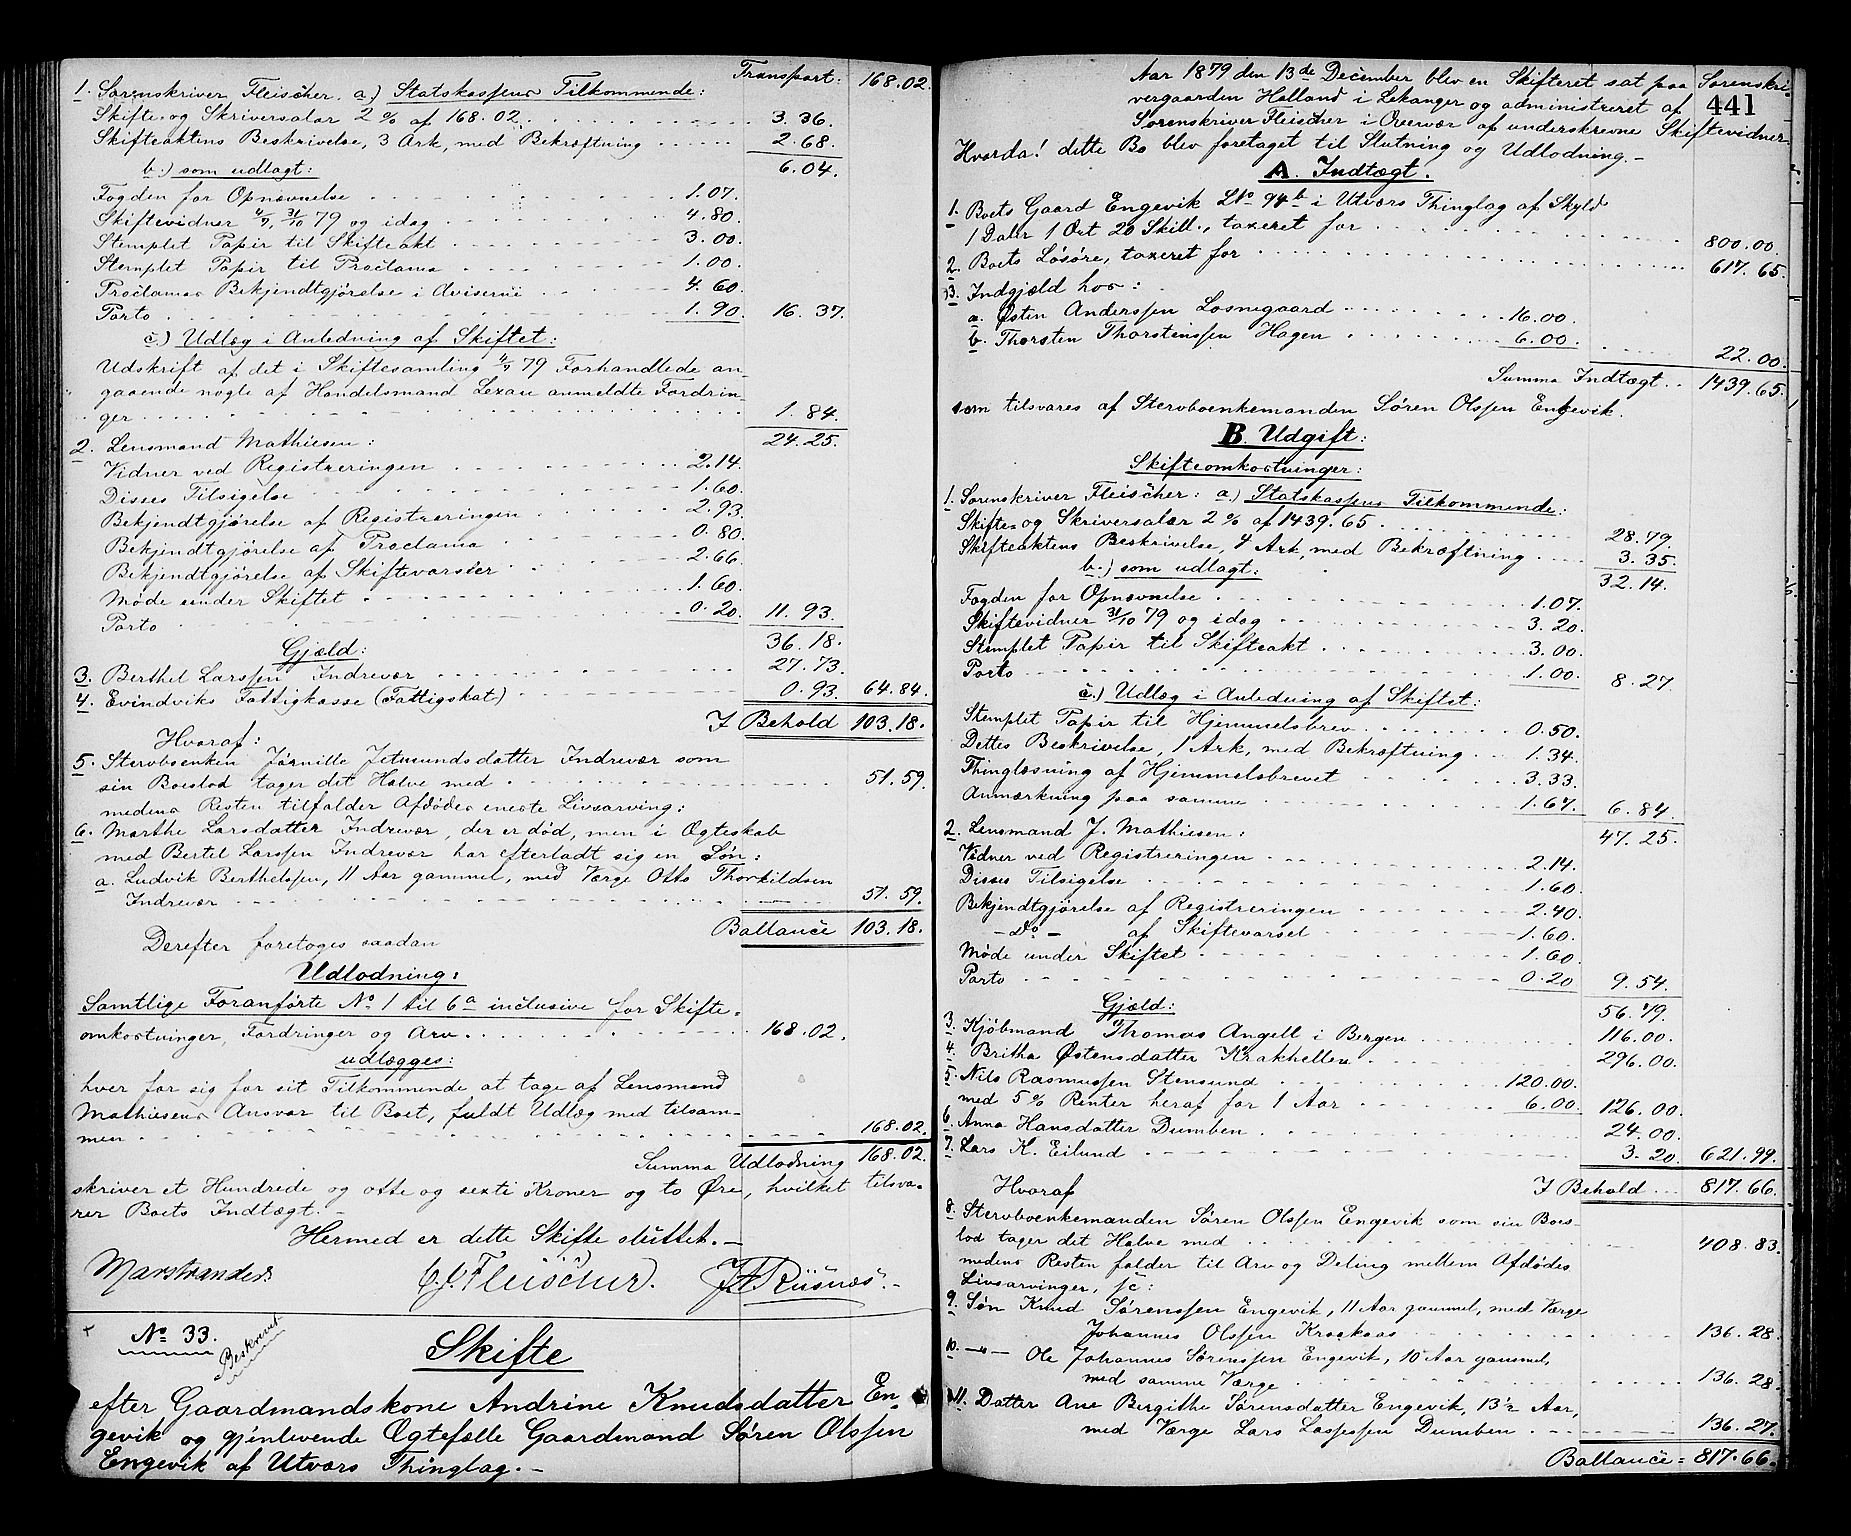 Transport: 168.02.
1. Sorenskriver Fleischer. a.) Statskassens Tilkommende:
Skifte- og Skriversalær 2 % af 168.02. 3.36.
Skifteaktens Beskrivelse, 3 Ark, med Bekræftning 2.68.
b.) som udlagt: 6.04.
Fogden for Opnævnelse 1.07.
Skiftevidner 4/9, 31/10 79 og idag 4.80.
Stemplet Papir til Skifteakt 3.00.
Stemplet Papir til Proclama 1.00.
Proclamas Bekjendtgjørelse i Aviserne 4.60.
Porto 1.90. 16.37.
c.) Udlæg i Anledning af Skiftet:
Udskrift af det i Skiftesamling 4/9 79 Forhandlede an-
gaaende nogle af Handelsmand Lexau anmeldte Fordrin-
ger 1.84.
24.25.
2. Lensmand Mathiesen:
Vidner ved Registreringen 2.14.
Disses Tilsigelse 1.60.
Bekjendtgjørelse af Registreringen 2.93.
Bekjendtgjørelse af Proclama 0.80.
Bekjendtgjørelse af Skiftevarsler 2.66.
Møde under Skiftet 1.60.
Porto 0.20. 11.93.
Gjæld: 36.18.
3. Berthel Larssen Indrevær 27.73.
4. Evindviks Fattigkasse (Fattigskat) 0.93. 64.84.
I Behold 103.18.
Hvoraf:
5. Stervboenken Jørnille Jetmundsdatter Indrevær som
sin Boeslod tager det Halve med 51.59.
medens Resten tilfalder Afdødes eneste Livsarving:
6. Marthe Larsdatter Indrevær, der er død, men i Ægteskab
med Bertel Larssen Indrevær har efterladt sig en Søn:
a. Ludvik Berthelssen, 11 Aar gammel, med Værge Otto Thorkildsen
Indrevær 51.59.
Ballance 103.18.
Derefter foretoges saadan
Udlodning:
Samtlige Foranførte No 1 til 6a inclusive for Skifte-
omkostninger, Fordringer og Arv 168.02.
udlægges:
hver for sig for sit Tilkommende at tage af Lensmand
Mathiesens Ansvar til Boet, fuldt Udlæg med tilsam-
men 168.02.
Summa Udlodning 168.02.
skriver et Hundrede og otte og sexti Kroner og to Øre, hvilket tilsva-
rer Boets Indtægt. -
Hermed er dette Skifte sluttet. -
Marstrander. C. C. Fleischer. J A Risnæs. -
No 33. Beskrevet
Skifte
efter Gaardmandskone Andrine Knudsdatter En-
gevik og gjenlevende Ægtefælle Gaardmand Søren Olssen
Engevik af Utværs Thinglag. -
441
Aar 1879 den 13de December blev en Skifteret sat paa Sorenskri-
vergaarden Holland i Lekanger og administreret af
Sorenskriver Fleischer i Overvær af underskrevne Skiftevidner
Hvorda! dette Bo blev foretaget til Slutning og Udlodning. -
A. Indtægt.
1. Boets Gaard Engevik LNo 94b i Utvær Thinglag af Skyld
1 Daler 1 Ort 20 Skill., taxeret for 800.00.
2. Boets Løsøre, taxeret for 617.65.
3. Indgjæld hos:
a. Østen Anderssen Losnegaard 16.00.
b. Thorsten Thorstenssen Hagen 6.00. 22.00.
Summa Indtægt 1439.65.
som tilsvares af Stervboenkemanden Søren Olssen Engevik.
B. Udgift:
Skifteomkostninger:
1. Sorenskriver Fleischer: a.) Statskassens Tilkommende:
Skifte- og Skriversalær 2 % af 1439.65. 28.79.
Skifteaktens Beskrivelse, 4 Ark, med Bekræftning 3.35.
b.) som udlagt: 32.14.
Fogden for Opnævnelse 1.07.
Skiftevidner 31/10 79 og idag 3.20.
Stemplet Papir til Skifteakt 3.00.
Porto 1.00. 8.27.
c.) Udlæg i Anledning af Skiftet:
Stemplet Papir til Hjemmelsbrev 0.50.
Dettes Beskrivelse, 1 Ark, med Bekræftning 1.34.
Thinglæsning af Hjemmelsbrevet 3.33.
Anmærkning paa samme 1.67. 6.84.
2. Lensmand J. Mathiesen: 47.25.
Vidner ved Registreringen 2.14.
Disses Tilsigelse 1.60.
Bekjendtgjørelse af Registreringen 2.40.
- do - af Skiftevarsel 1.60.
Møde under Skiftet 1.60.
Porto 0.20 9.54.
Gjæld: 56.79.
3. Kjøbmand Thomas Angell i Bergen 116.00.
4. Britha Østensdatter Krakhellen 296.00.
5. Nils Rasmussen Stensund 120.00.
med 5 % Renter heraf for 1 Aar 6.00. 126.00.
6. Anna Hansdatter Dumben 24.00.
7. Lars K. Eilund 3.20. 621.99.
Hvoraf I Behold 817.66.
8. Stervboenkemanden Søren Olssen Engevik som sin Boes-
lod tager det Halve med 408.83.
medens Resten falder til Arv og Deling mellem Afdødes
Livsarvinger, sc:
9. Søn Knud Sørenssen Engevik, 11 Aar gammel, med Værge
Johannes Olssen Kraakaas 136.28.
10. -"- Ole Johannes Sørenssen Engevik, 10 Aar gammel,
med samme Værge 136.28.
11. Datter Ane Bergithe Sørensdatter Engevik, 13½ Aar,
med Værge Lars Lassessen Dumben 136.27.
Ballance = 817.66.